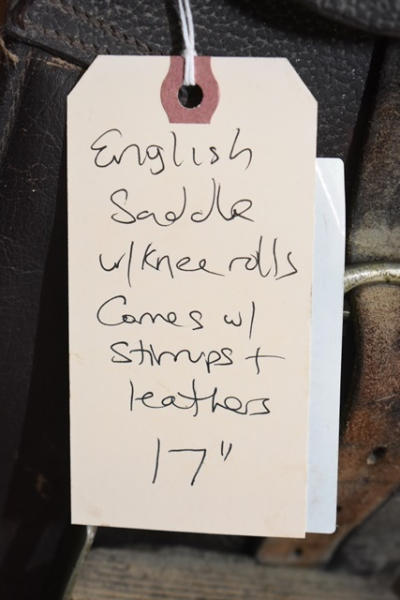 English
Saddle
w/knee rolls
Comes w/
stirrups +
leathers
17"